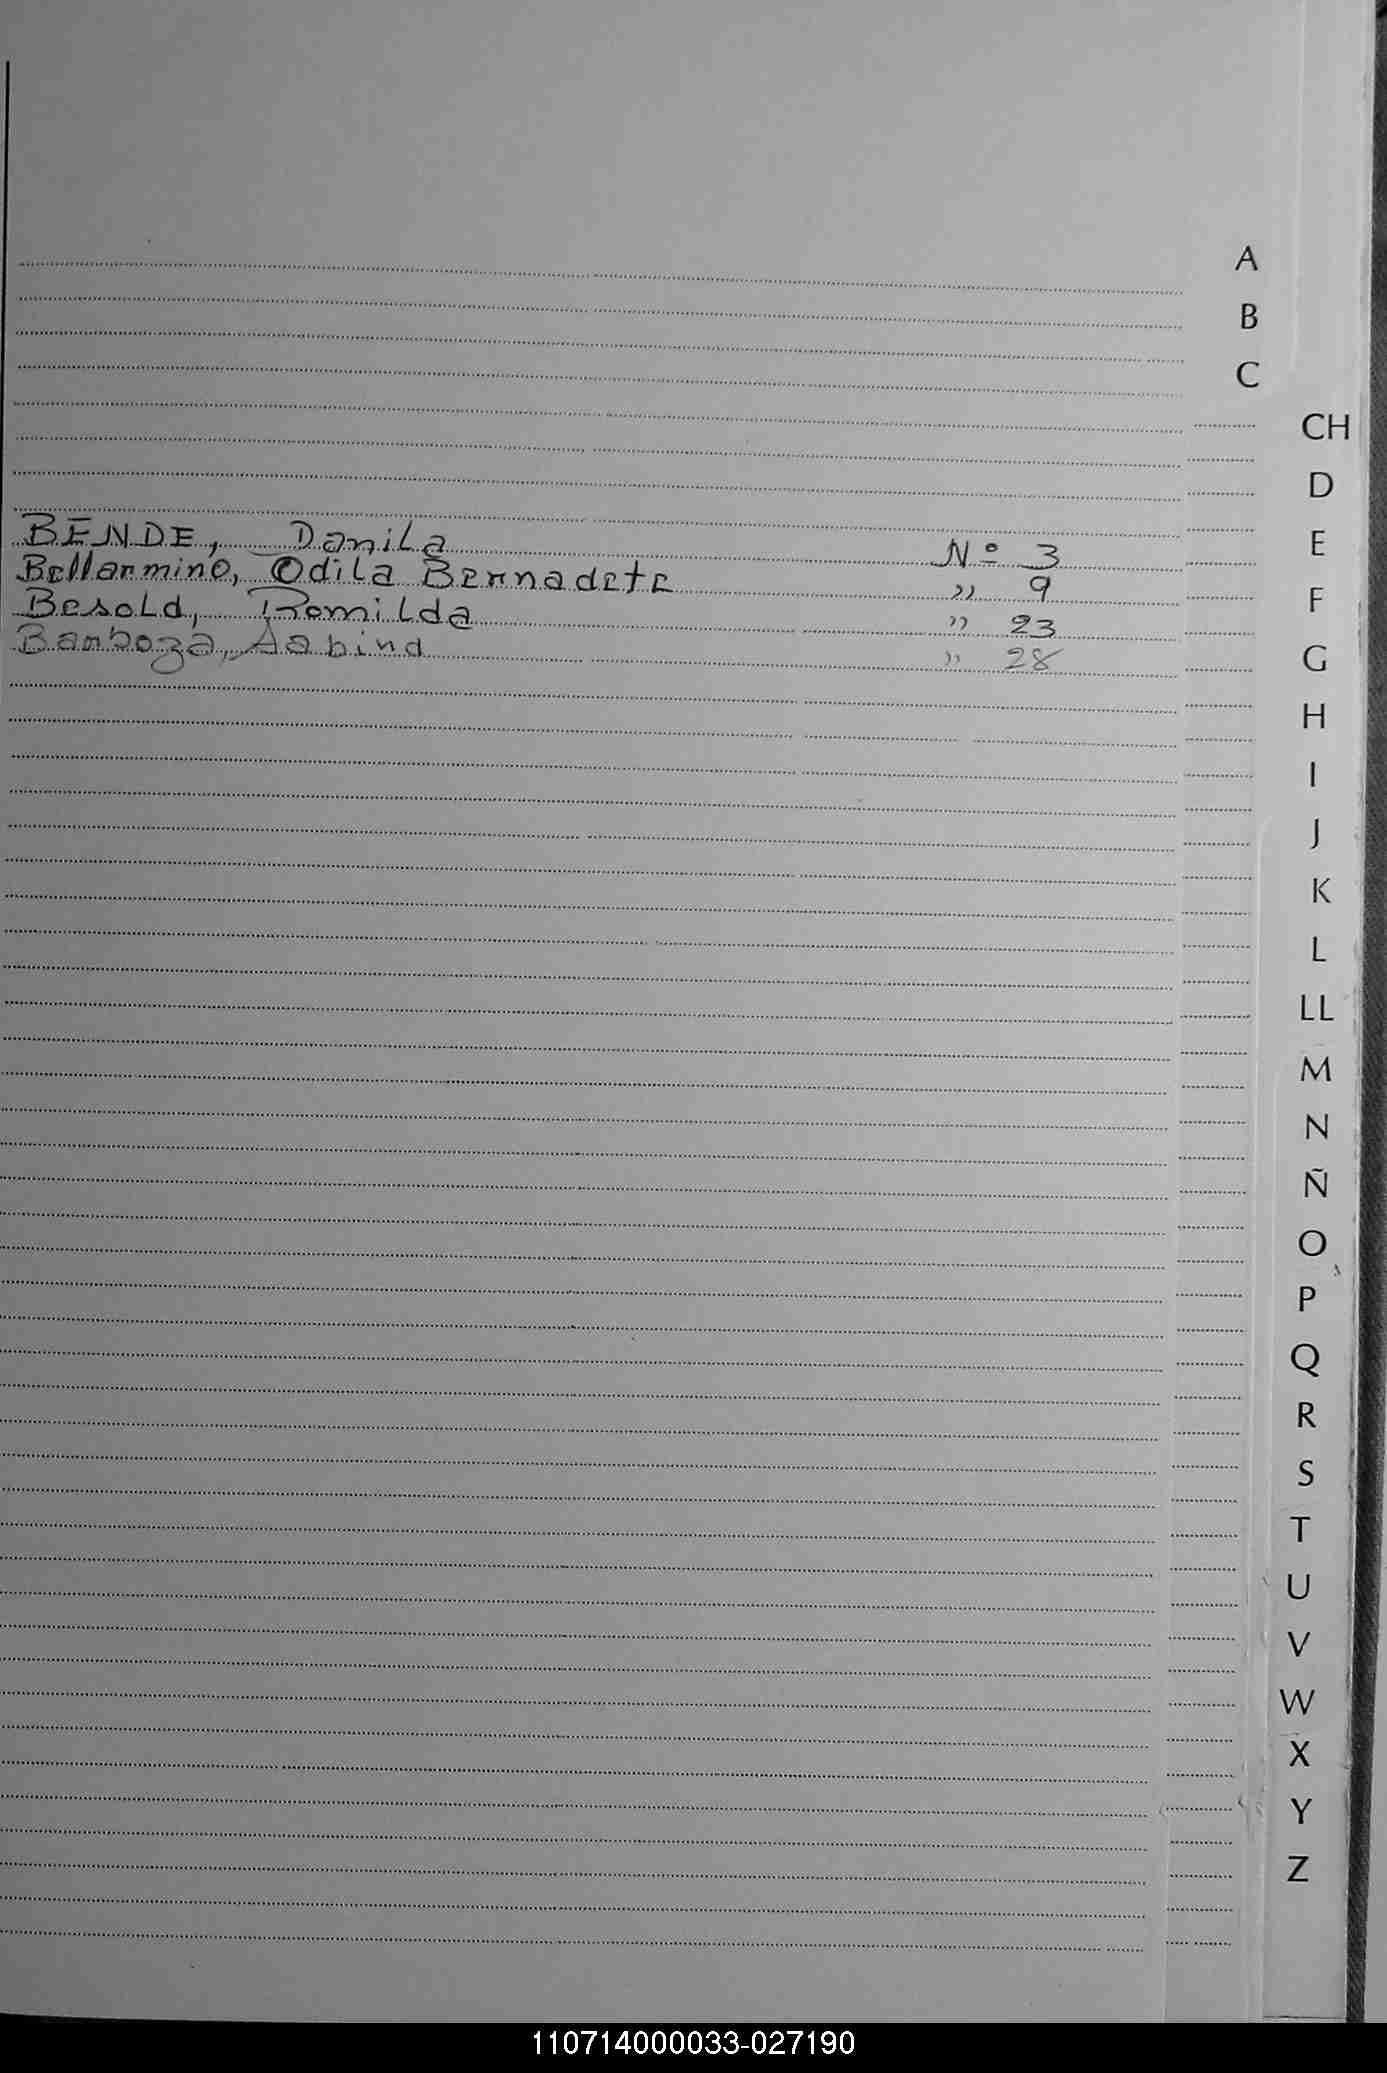 A
B
C
CH
D
BENDE, Danila Nº 3
E
Bellarmino, Odila Bernadete " 9
F
Besold, Romilda " 23
Barboza, " 28
G
H
I
J
K
L
LL
M
N
Ñ
O
P
Q
R
S
T
U
V
W
X
Y
Z
110714000033-027190